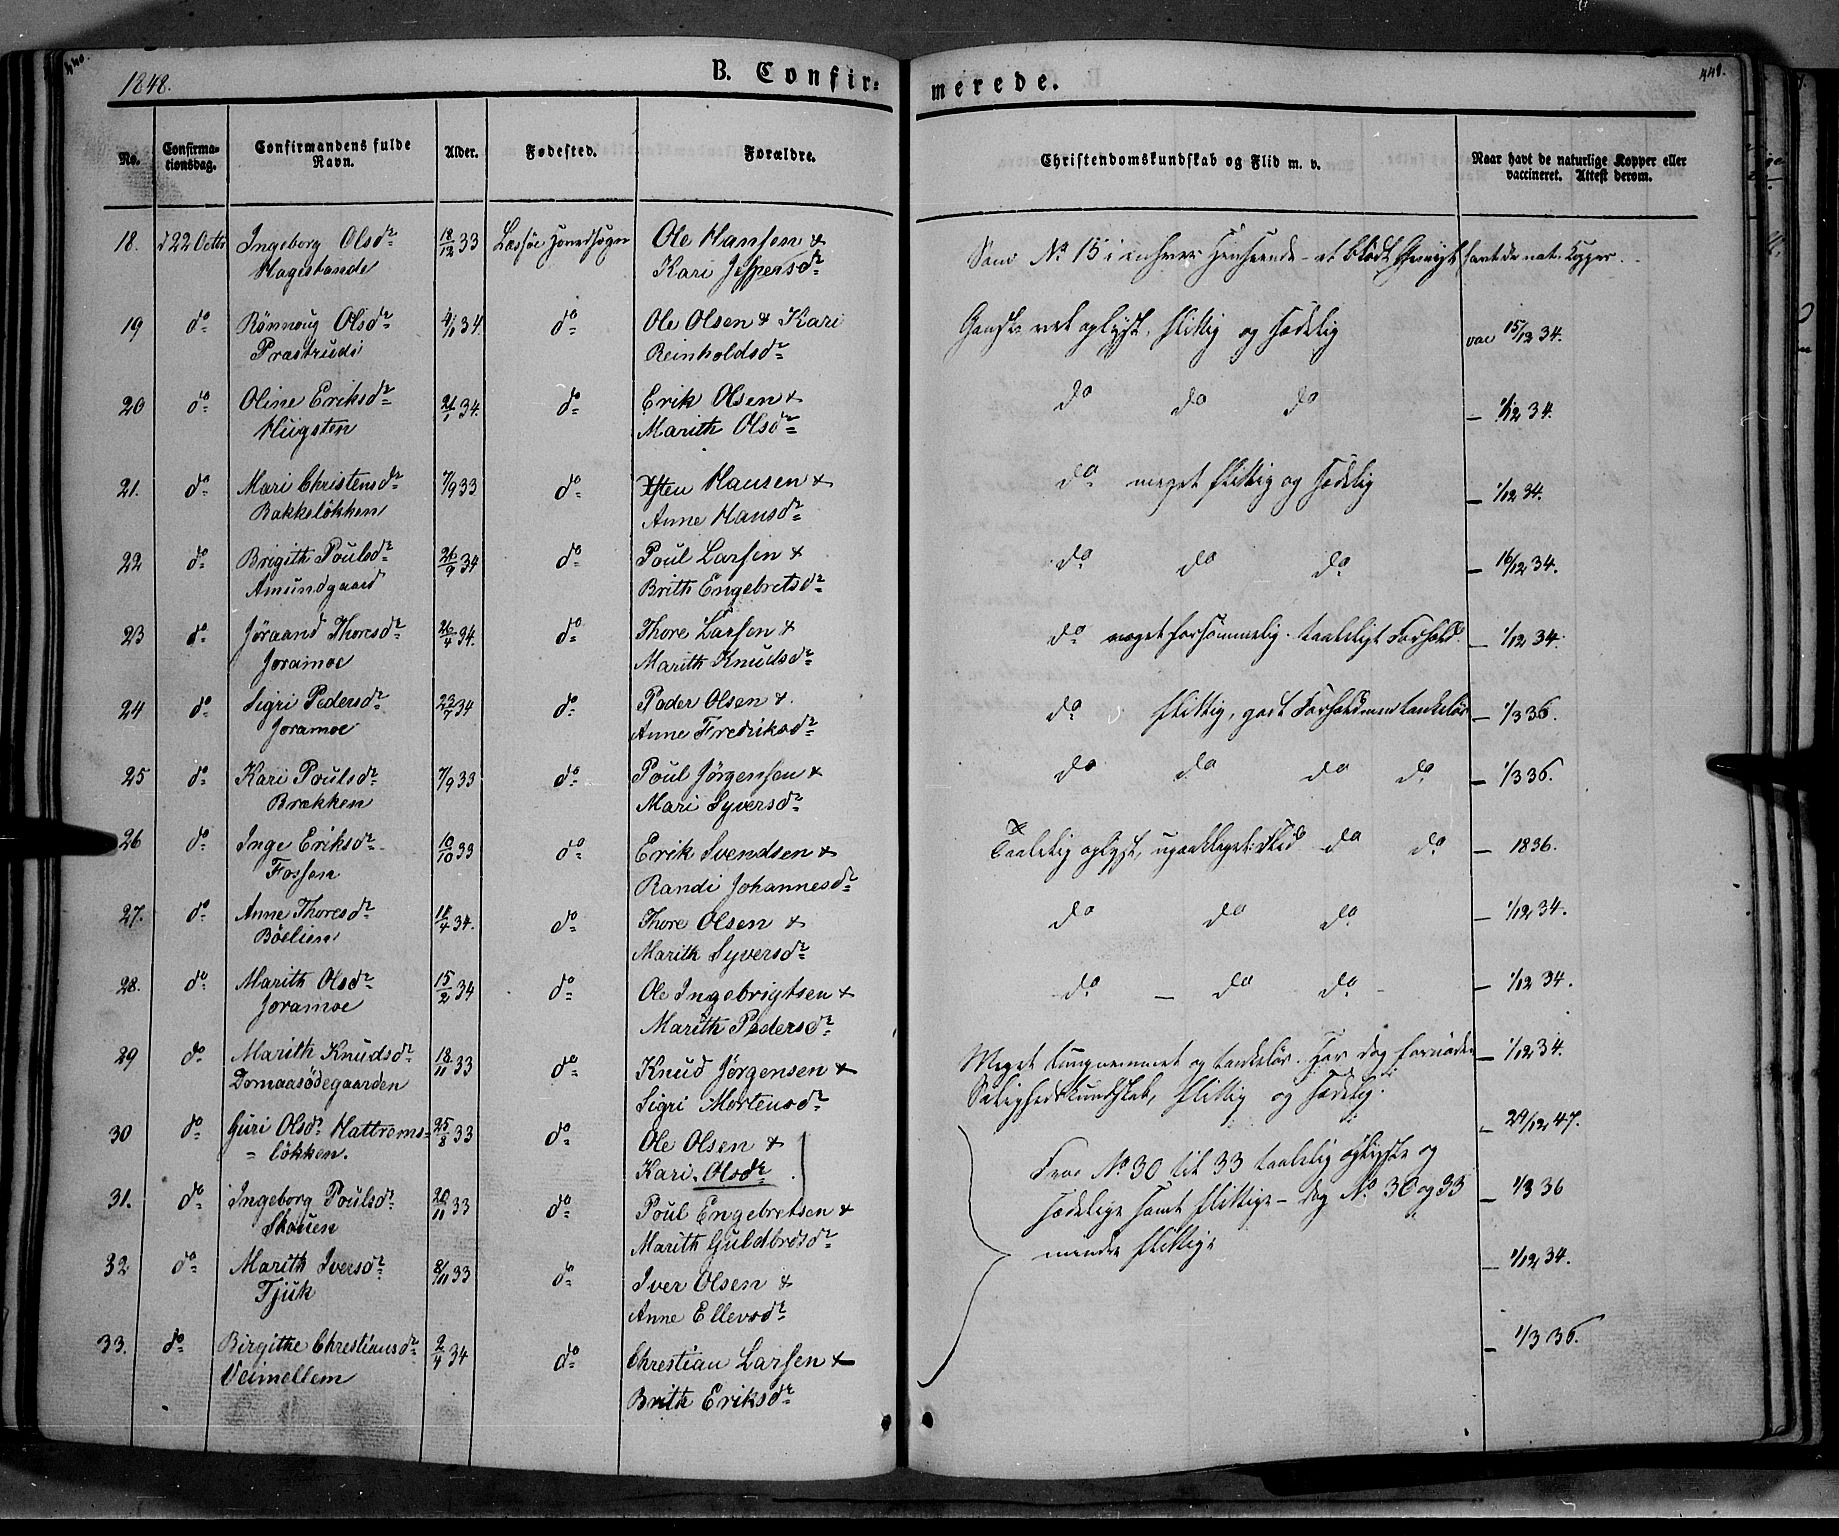 440.
1848.
B. Confir-
merede.
441.
No.
Confirma-
tionsdag.
Confirmandens fulde
Navn.
Alder.
Fødested.
Forældre.
Christendomskundskab og Flid m. v.
Naar havt de naturlige Kopper eller
vaccineret. Attest derom.
18. d 22 Octbr Ingeborg Olsdr 18/12 33 Lessøe Hovedsogn Ole Hansen &
Hagestande Kari Jespersdr
Som No 15 i enhver Henseende - et blødt Gemyt havt de nat. Kopper.
19 do Rønnoug Olsdr 4/1 34. do Ole Olsen & Kari
Prastrudi Reinholdsdr
Ganske vel oplyst, flittig og sædelig vac 15/12 34.
20 do Oline Eriksdr 21/1 34. do Erik Olsen &
Hügsten Marith Olsdr
do do do - 1/12 34.
21. do Mari Christensdr 7/9 33 do Xsten Hansen &
Bakkeløkken Anne Hansdr
do meget flittig og sædelig - 1/12 34.
22 do Brigith Poulsdr 26/9 34 do Poul Larsen &
Amundgaard Brith Engebretsdr
do do do - 16/12 34.
23 do Jøraand Thoresdr 26/4 34. do Thore Larsen &
Joramoe Marith Knudsdr
do noget forsømmelig. taaleligt Forhold - 1/12 34.
24 do Sigri Pedersdr 22/7 34 do Peder Olsen &
Joramoe Anne Fredriksdr
do flittig, godt Forhold men tankeløs - 1/3 36.
25 do Kari Poulsdr 7/9 33 do Poul Jørgensen &
Brækken Mari Syversdr
do do do do - 1/3 36.
26 do Inge Eriksdr 10/10 33 do Erik Svendsen &
Fossen Randi Johannesdr
Taalelig oplyst, upaaklaget Flid do do - 1836.
27. do Anne Thoresdr 18/4 34. do Thore Olsen &
Böelien Marith Syversdr
do do do - 1/12 34.
28. do Marith Olsdr 15/2 34 do Ole Ingebrigtsen &
Joramoe Marith Pedersdr
do - do do - - 1/12 34.
29 do Marith Knudsdr 18/11 33 do Knud Jørgensen &
Domaasødegaarden Sigri Mortensdr
Meget tungnemmet og tankeløs. Har dog fornøden - 1/12 34.
Salighedskundskab, flittig og sædelig.
30 do Guri Olsdr Hattrems- 25/8 33 do Ole Olsen &
= løkken. Kari Olsdr
- 29/12 47.
31. do Ingeborg Poulsdr 20/11 33 do Poul Engebretsen &
Skouen Marith Guldbrdsdr
Fra No 30 til 33 taalelig oplyste og
sædelige samt flittige - dog No 30 og 33 - 1/3 36
mindre flittige
32 do Marith Iversdr 8/11 33 do Iver Olsen &
Tjük Anne Ellevsdr
- 1/12 34.
33. do Birgithe Chrestiansdr 2/4 34 do Chrestian Larsen &
Veimellem Brith Eriksdr
- 1/3 36.